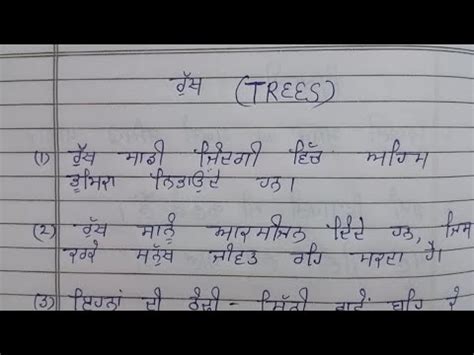 ਰੁੱਖ (TREES)
(1) ਰੁੱਖ ਸਾਡੀ ਜ਼ਿੰਦਗੀ ਵਿੱਚ ਅਹਿਮ
ਭੂਮਿਕਾ ਨਿਭਾਉਂਦੇ ਹਨ।
(2) ਰੁੱਖ ਸਾਨੂੰ ਆਕਸੀਜਨ ਦਿੰਦੇ ਹਨ, ਜਿਸ
ਕਰਕੇ ਮਨੁੱਖ ਜੀਵਤ ਰਹਿ ਸਕਦਾ ਹੈ।
(3) ਇਹਨਾਂ ਦੀ ਠੰਢੀ - ਮਿੱਠੀ ਛਾਵੇਂ ਬਹਿ ਕੇ